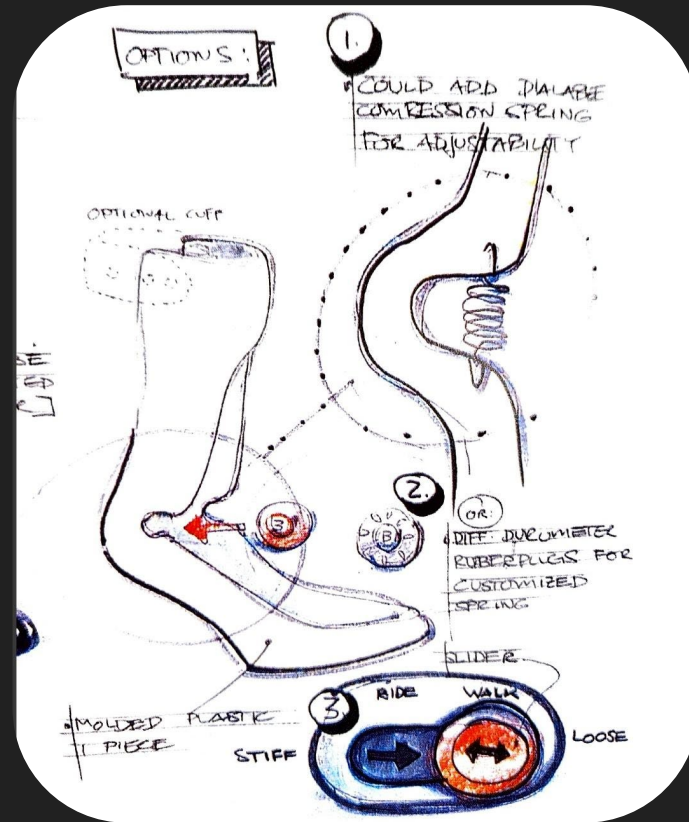 OPTIONS:
1.
COULD ADD DIALABLE
COMRESSION SPRING
FOR ADJUSTABILITY
OPTIONAL CUFF
ED
3
B
2.
OR:
DIFF. DUROMETER
RUBERPLUGS FOR
CUSTOMIZED
SPRING
SLIDER
3.
RIDE WALK
STIFF
LOOSE
MOLDED PLASTIC
1 PIECE